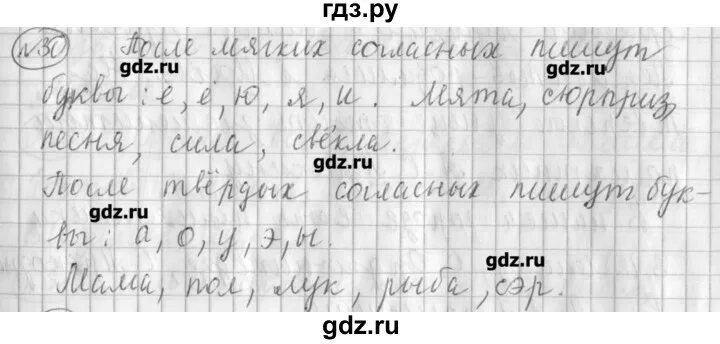 гдз.ру
№30 После мягких согласных пишут
gdz.ru gdz.ru
буквы: е, ё, ю, я, и. Мята, сюрприз,
песня, сила, свёкла.
gdz.ru
После твёрдых согласных пишут бук-
gdz.ru
вы: а, о, у, э, ы.
gdz.ru
Мама, пол, лук, рыба, сэр.
gdz.ru